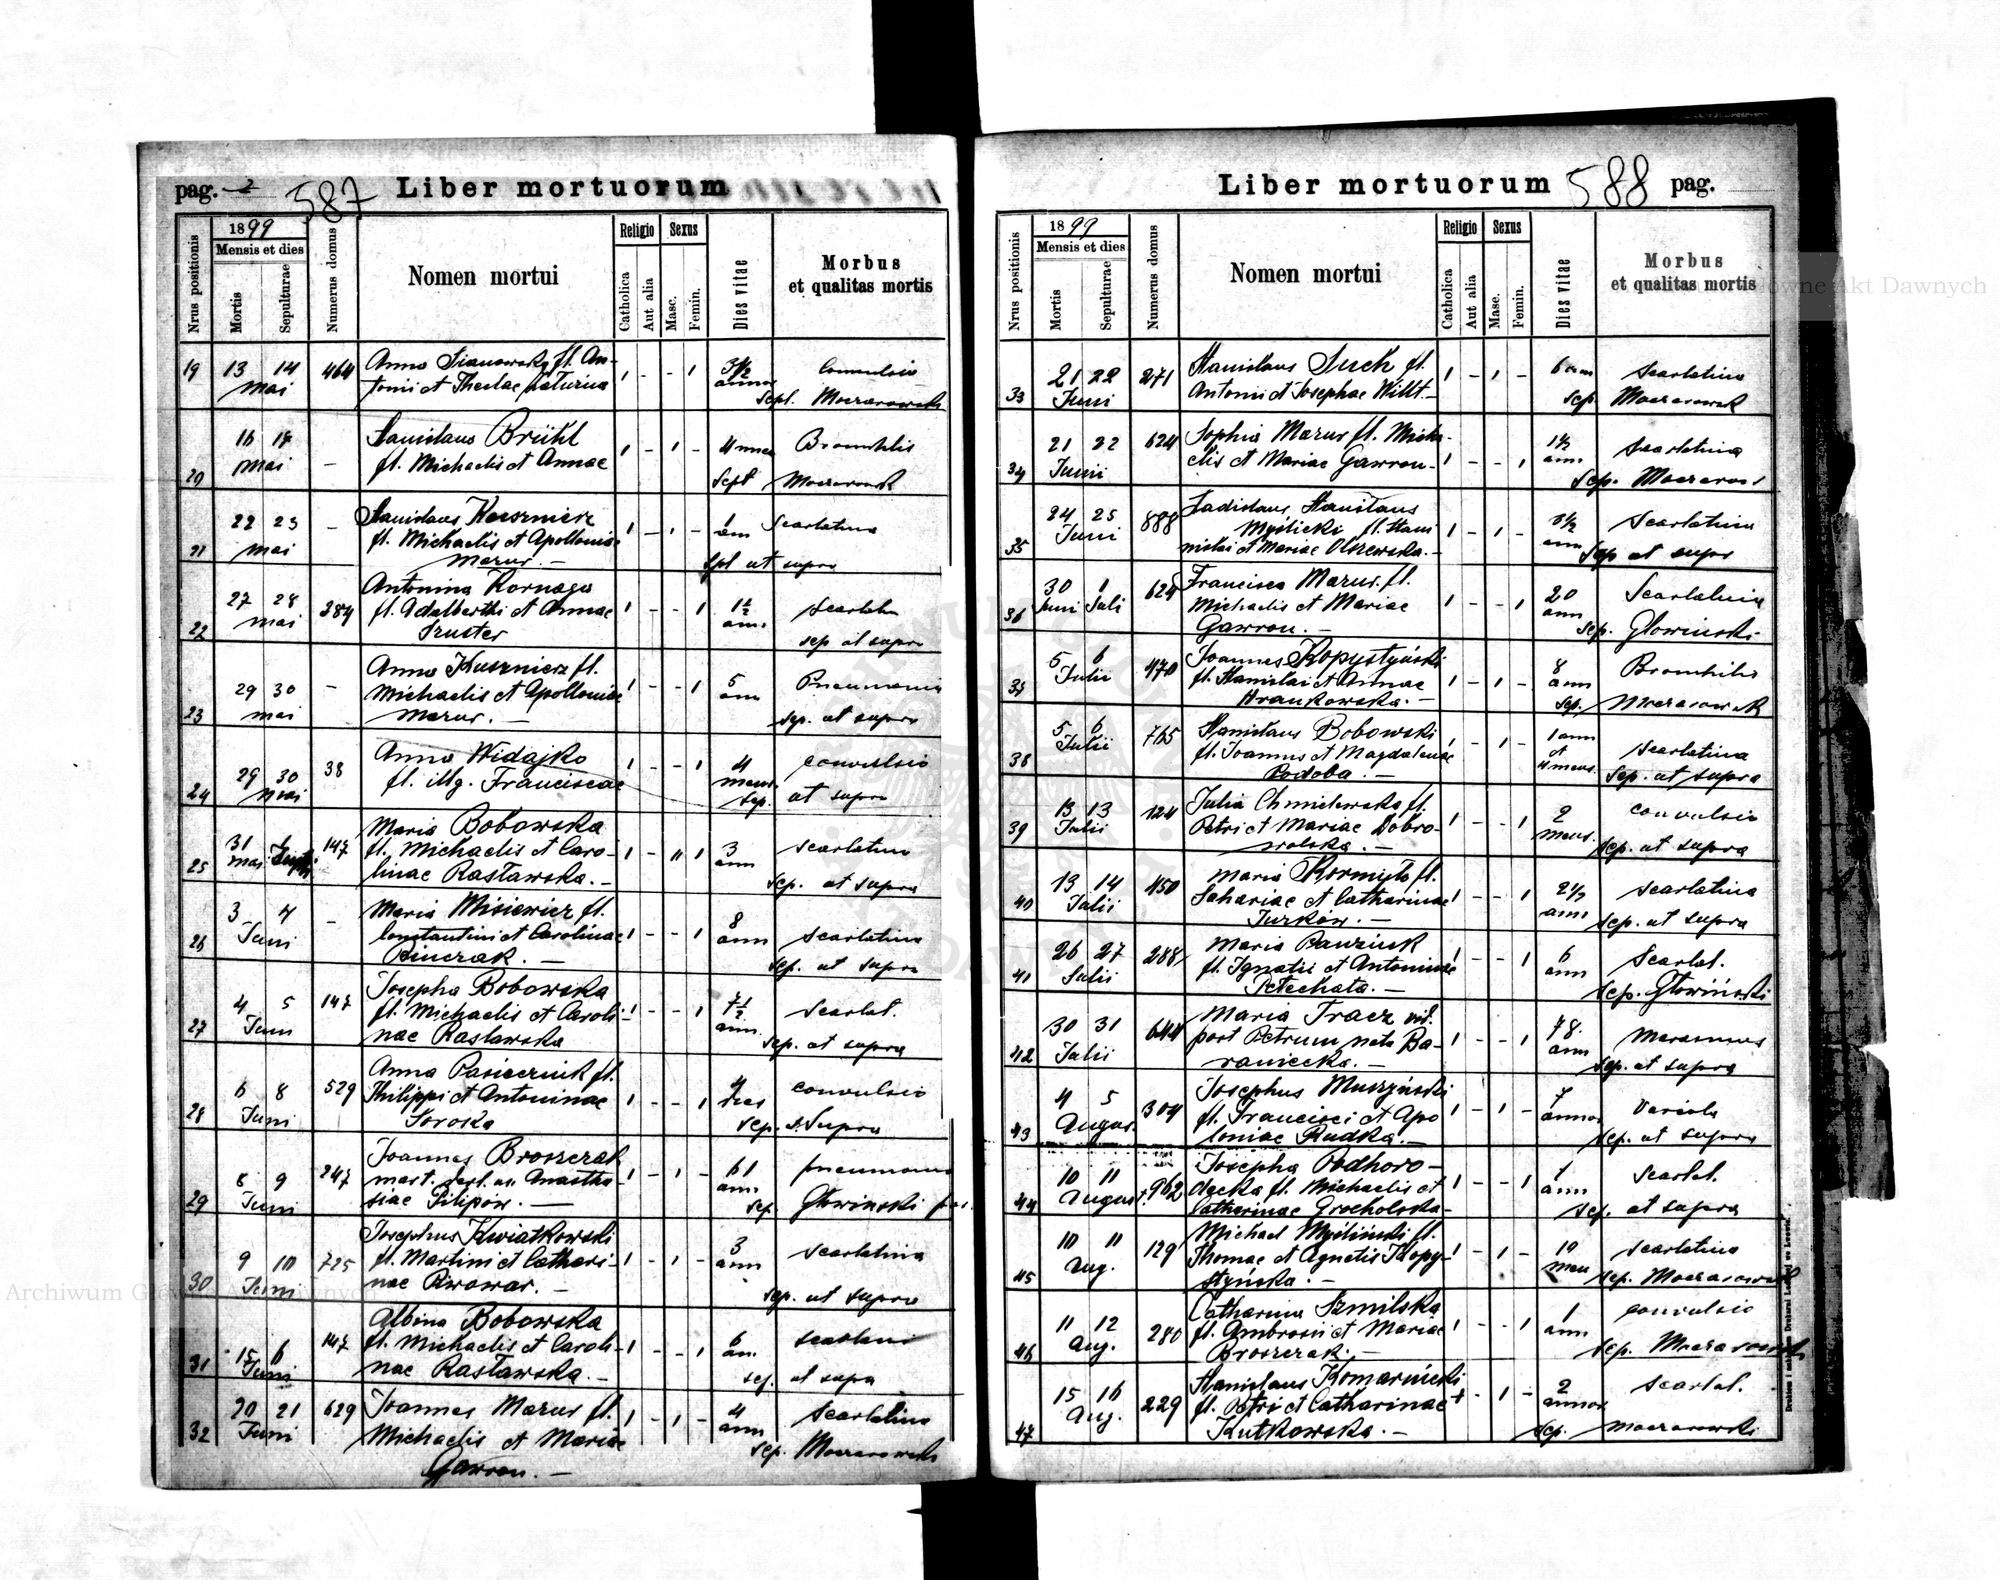 pag. 2 587 Liber mortuorum
1899
Mensis et dies
Nrus positionis
Mortis
Sepulturae
Numerus domus
Nomen mortui
Religio
Catholica
Aut alia
Sexus
Masc.
Femin.
Dies vitae
Morbus
et qualitas mortis
19 13 14 464 Anna fl. An-
Mai tonii et Theclae 1 - - 1 3½ Convulsio
annor
20 16 Stanislaus Brühl 1 - 1 -
Mai - fl. Michaelis et Annae
21 22 23 - Stanislaus Kusznierz 1 - 1 - 1 Scarlatina
Mai fl. Michaelis et Apolloniae ann
Mazur. - ut supra
22 27 28 284 Antonina Kornaga 1 - - 1 1½
Mai fl. Adalberti et Annae ann.
Szuster sep ut supra
23 29 30 - Anna Kusznierz fl. 1 - - 1 5 Pneumonia
Mai Michaelis et Apolloniae ann
Mazur. - sep. ut supra
24 29 30 38 Anna Widajko 1 - - 1 4 convulsio
Mai fl. illg. Franciscae mens.
sep. ut supra
25 31 147 Maria Bobowska 1 - 1 3 scarlatina
Mai fl. Michaelis et Caro- ann
linae Rasławska. - sep. ut supra
26 3 4 - Maria Misiewicz fl. 1 - - 1 8 scarlatina
Juni Constantini et Carolinae ann
sep. ut supra
27 4 5 147 Josepha Bobowska 1 - - 1 7½ scarlat.
Juni fl. Michaelis et Caroli- ann.
nae Raslawska sep. ut supra
28 6 8 529 Anna Pasiecznik fl. 1 - - 1 convulsio
Juni Philippi et Antoninae
Soroka sep. ut supra
29 8 9 247 Joannes Broszczak 1 - 1 - 61 pneumonia
Juni ann
siae Pilipow. - sep. Głowinski
30 9 10 725 Josephus Kwiatkowski 1 - 1 - 3 scarlatina
Juni fl. Martini et Cathari- ann
nae Piwowar. - sep. ut supra
31 15 6 147 Albina Bobowska 1 - - 1 6
Juni fl. Michaelis et Caroli- an.
nae Rasławska. - sep. ut supra
32 20 21 629 Joannes Mazur fl. 1 - 1 - 4 scarlatina
Juni Michaelis et Mariae ann
Gawron. - sep. Moczarowski
Liber mortuorum 588 pag.
1899
Mensis et dies
Nrus positionis
Mortis
Sepulturae
Numerus domus
Nomen mortui
Religio
Catholica
Aut alia
Sexus
Masc.
Femin.
Dies vitae
Morbus
et qualitas mortis
33 21 22 271 Stanislaus Such fl. 1 - 1 - 6 ann scarlatina
Juni Antonii et Josephae
34 21 22 624 Sophia Mazur fl. Micha- 1 - - 1 1½ scarlatina
Junii elis et Mariae Gawron - ann
35 24 25 888 Ladislaus Stanislaus 1 - 1 - 3½ scarlatina
Juni Myślicki fl. Stani ann
slai et Mariae Olszewska. - sep ut supr
36 30 1 624 Francisca Mazur. fl. 1 - - 1 20 Scarlatina
Juni Juli Michaelis et Mariae ann
Gawron. - sep. Głowinski
37 5 6 470 Joannes Kopystyński 1 - 1 - 8
Julii fl. Stanislai et Annae ann
Hrankowska. - sep. Moczarowsk
38 5 6 765 Stanislaus Bobowski 1 - 1 - 1 ann scarlatina
Julii fl. Joannis et Magdalenae et
Podoba. - 4 mens. sep. ut supra
39 13 124 Julia Chmielewska fl. 1 - - 1 2 convulsio
Julii Petri et Mariae Dobro- mens.
wolska. - sep. ut supra
40 13 14 450 Maria Kormyło fl. 1 - - 1 2½ scarlatina
Julii Zachariae et Catharinae ann
Jurków. - sep. ut supra
41 26 27 288 Maria 1 - - 1 6 Scarlat.
Julii fl. Ignatii et Antoninae ann
Petechata. - sep. Głowiński
42 30 31 644 Maria Tracz vid. 1 - - 1 78. Marasmus
Julii post Petrum nata Ba- ann
raniecka. - sep. ut supra
43 4 5 304 Josephus Muszyński 1 - 1 - 7 Variola
August fl. Francisci et Apo annor
loniae Rudka. - sep. ut supra
44 10 11 962 Josepha Podhoro- 1 - - 1 scarlat.
August. decka fl. Michaelis et ann
Catharinae Grocholska - sep. ut supra
45 10 11 129 Michael Myśliński fl. 1 - 1 - 10 scarlatina
Aug. Thomae et Agnetis Kopy- men
styńska. - sep. Moczarowski
46 11 12 280 Catharina Szmilska 1 - - 1 1 convulsio
Aug. fl. Ambrosii et Mariae ann
Broszczak. - sep. Moczarowski
47 15 16 229 Stanislaus Komariński 1 - 1 - 2 scarlat.
Aug. fl. Petri et Catharinae annor
Kutkowska. - sep. Moczarowski
Archiwum Główne Akt Dawnych